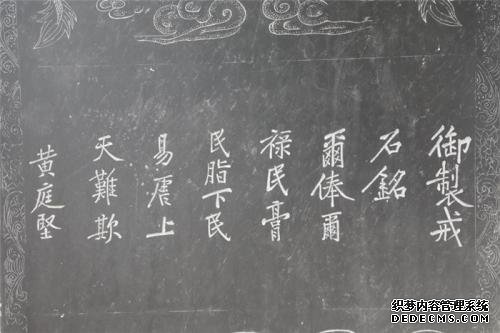 御製戒
石銘
爾俸爾
祿民膏
民脂下民
易虐上
天難欺
黄庭堅
织梦内容管理系统
DEDECMS.COM